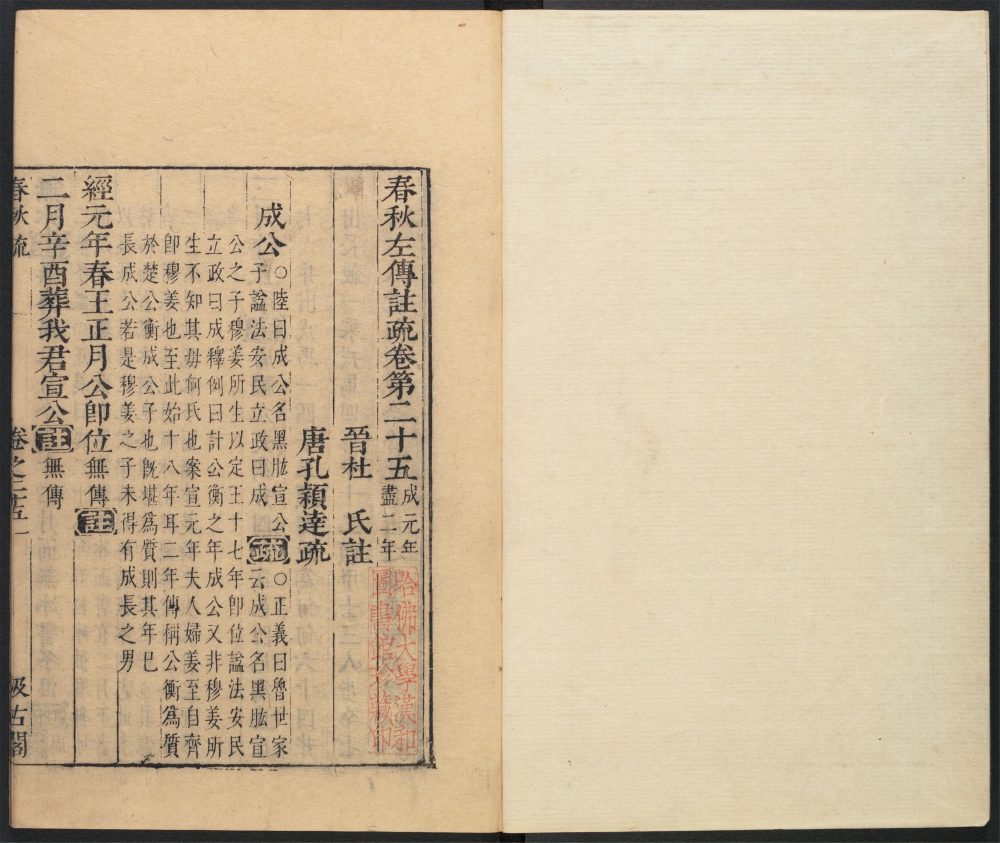 春秋左傳註疏卷第二十五成元年盡二年
晉杜 氏註
唐孔穎達疏
成公○陸曰成公名黑肱宣公子謚法安民立政曰成疏○正義曰魯世家云成公名黑肱宣
公之子穆姜所生以定王十七年卽位謚法安民
立政曰成釋例曰計公衡之年成公又非穆姜所
生不知其母何氏也案宣元年夫人婦姜至自齊
卽穆姜也至此始十八年耳二年傳稱公衡爲質
於楚公衡成公子也旣堪爲質則其年已
長成公若是穆姜之子未得有成長之男
經元年春王正月公卽位無傳註
二月辛酉葬我君宣公註無傳
春秋疏 卷之二十五 一 汲古閣
哈佛大學漢和
圖書館珍藏印